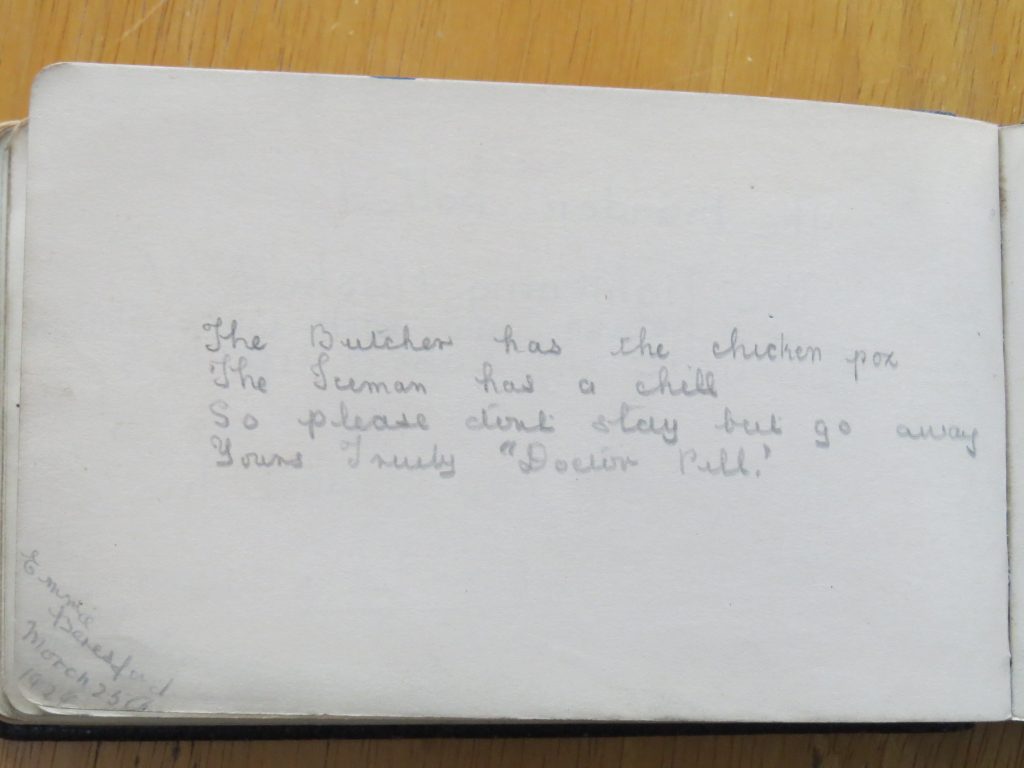 The Butcher has the chicken pox
The Iceman has a chill
So please dont stay but go away
Yours Truly "Doctor Pill."
March 25th